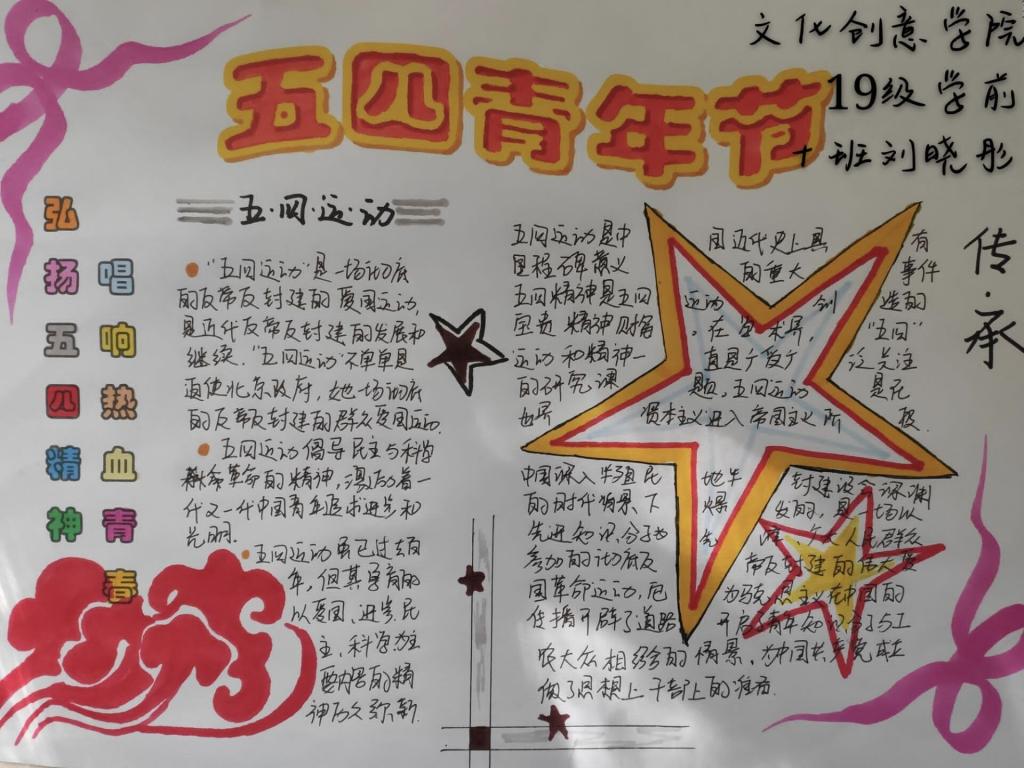 五四青年节
文化创意学院
19级学前
十班刘晓彤
弘扬五四精神
唱响热血青春
五·四·运·动
“五四运动”是一场彻底
的反帝反封建的爱国运动，
是近代反帝反封建的发展和
继续。“五四运动”不单单是
迫使北京政府，她一场彻底
的反帝反封建的群众爱国运动。
五四运动倡导民主与科学
革命的精神，激励着一
代又一代中国青年追求进步和
光明。
五四运动虽已过去百
年，但其孕育的
以爱国、进步、民
主、科学为主
要内容的精
神历久弥新
传·承
五四运动是中国近代史上具有
里程碑意义的重大事件
五四精神是五四运动创造的
宝贵精神财富。在学术界，“五四”
运动和精神一直是广受广泛关注
的研究课题，五四运动是在
世界资本主义进入帝国主义所
中国深入半殖民地半封建社会深渊
的时代背景下爆发的，是一场以
先进知识分子为先广大人民群众
参加的彻底反帝反封建的伟大爱
国革命运动，
传播开辟了道路开启了青年知识分子与工
农大众相结合的情景，为中国共产党成立
做了思想上干部上的准备